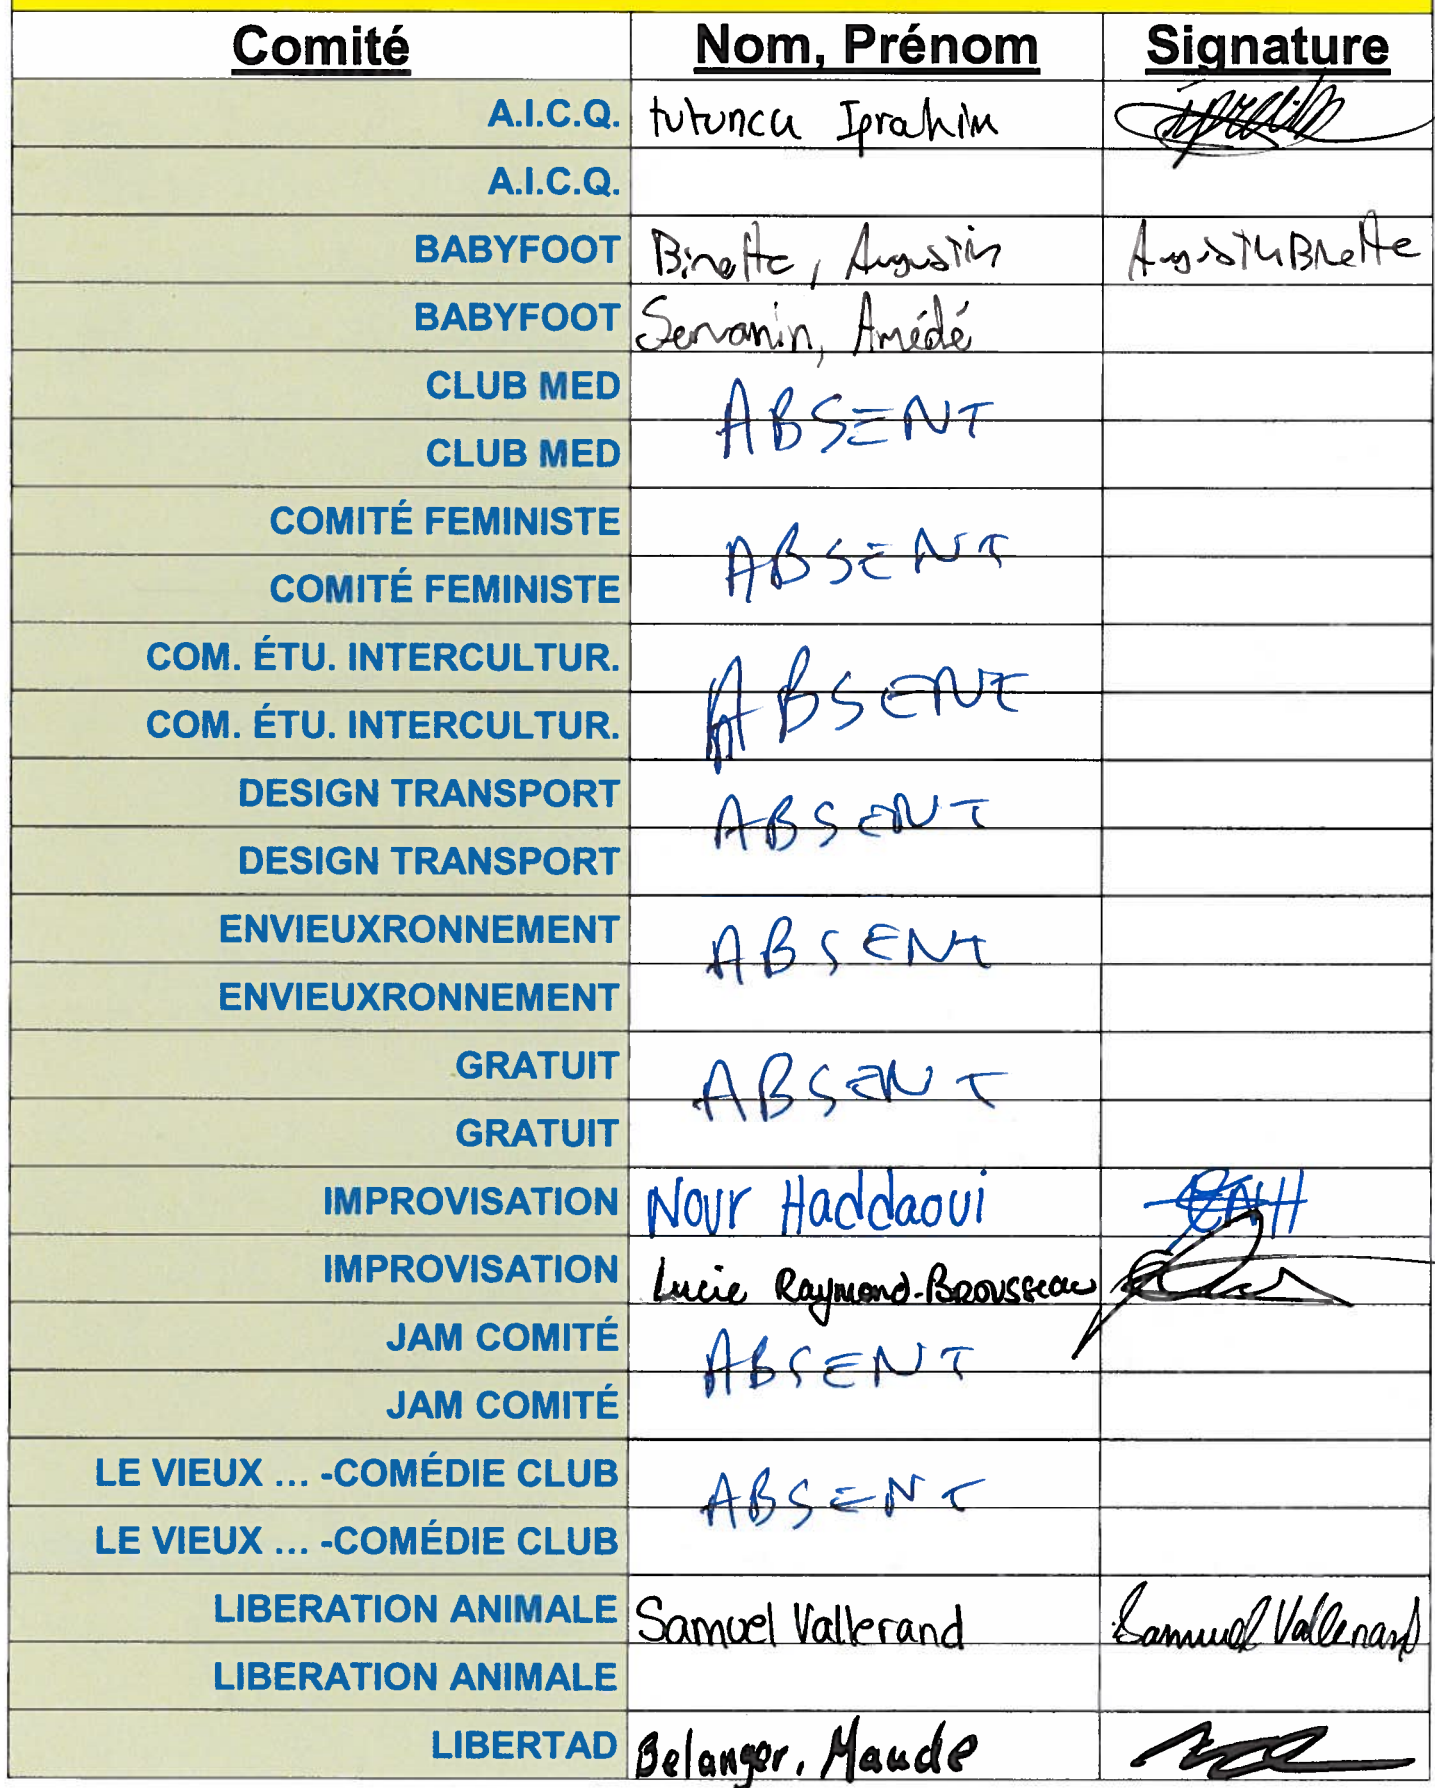 Comité Nom, Prénom Signature
A.I.C.Q. tutuncu Iprahim
A.I.C.Q.
BABYFOOT Binette, Augustin Augustin Binette
BABYFOOT Servanin, Amédé
CLUB MED ABSENT
CLUB MED
COMITÉ FEMINISTE ABSENT
COMITÉ FEMINISTE
COM. ÉTU. INTERCULTUR. ABSENT
COM. ÉTU. INTERCULTUR.
DESIGN TRANSPORT ABSENT
DESIGN TRANSPORT
ENVIEUXRONNEMENT ABSENT
ENVIEUXRONNEMENT
GRATUIT ABSENT
GRATUIT
IMPROVISATION Nour Haddaoui
IMPROVISATION Lucie Raymond-Brousseau
JAM COMITÉ ABSENT
JAM COMITÉ
LE VIEUX ... -COMÉDIE CLUB ABSENT
LE VIEUX ... -COMÉDIE CLUB
LIBERATION ANIMALE Samuel Vallerand Samuel Vallerand
LIBERATION ANIMALE
LIBERTAD Belanger, Maude